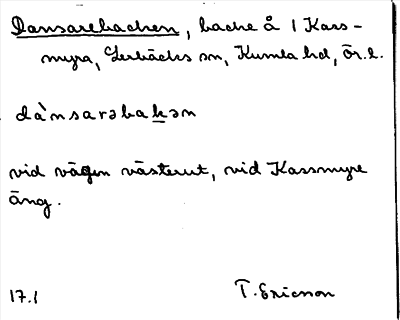 Dansarebacken, backe å 1 Kass-
myra, Lerbäcks sn, Kumla hd, Ör.l.
dànsarəbakən
vid vägen västerut, vid Kassmyre
äng.
17.1 T. Ericson